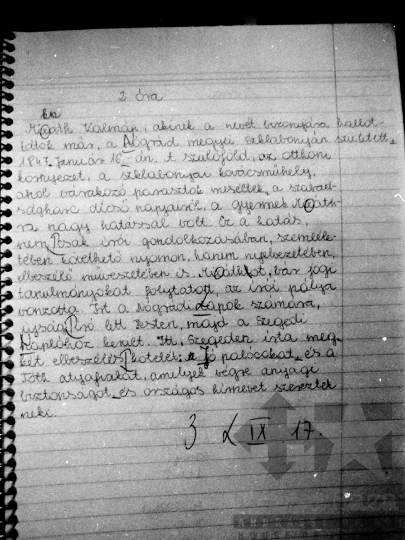 2. óra
ka
Mikath Kálmán, akinek a nevét bizonyára hallot-
tátok már, a Nógrád megyei Szklabonyán született,
1847. január 16-án. A szülőföld, az otthoni
környezet, a szklabonyai kovácsműhely,
ahol várakozó parasztok meséltek a szabad-
ságharc dicső napjairól, a gyermek Mikath-
ra nagy hatással volt. Ez a hatás,
nem csak írói gondolkozásában, szemléle-
tében követhető nyomon, hanem nyelvezetében,
elbeszélő művészetében is. Mikáthot, bár jogi
tanulmányokat folytatott, az írói pálya
vonzotta. Írt a Nógrádi Lapok számára,
újságíró lett Pesten, majd a Szegedi
Naplóhoz került. Itt, Szegeden írta meg
két elbeszélés kötetét: a Jó palócokat, és a
Tóth atyafiakat, amelyek végre anyagi
biztonságot, és országos hírnevet szereztek
neki.
3 IX 17.